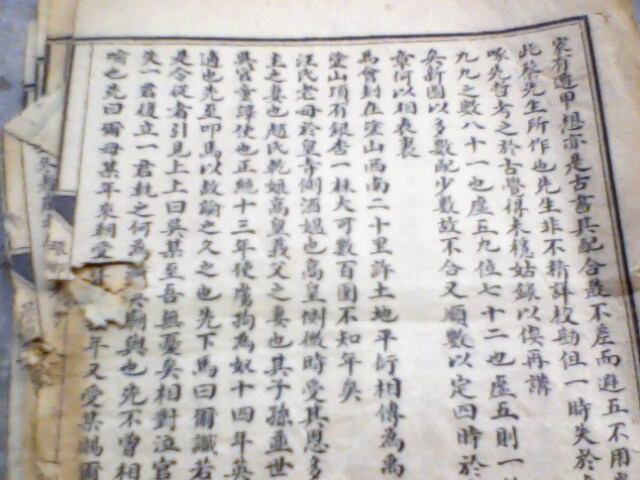 家有遁甲想亦是古書其配合盡不差而遊五不用
此蔡先生所作也先生非不精詳校勘但一時失於
啄先哲考之於古覺得未穩姑錄以俟再講
九九之數八十一也虛五九位七十二也虛五則一
矣新圖以多數配少數故不合又順數以定四時於
章何以相表裏
禹會封在塗山西南二十里許土地平衍相傳為禹
塗山頂有銀杏一株大可數百圍不知年矣
汪氏老母於皇寺側酒媼也高皇側微時受其恩多
主之妻也趙氏乾娘高皇義父之妻也其子孫並世
吳官童譯使也正統十三年使虜拘為奴十四年英
適也先至叩馬以敎諭之久之也先下馬曰爾識若
是令從者引見上上曰吳某至吾無憂矣相對泣官
失一君復立一君執之何為
與也先不曾相
喻也先曰爾母某年來朝受
年又受某賜爾